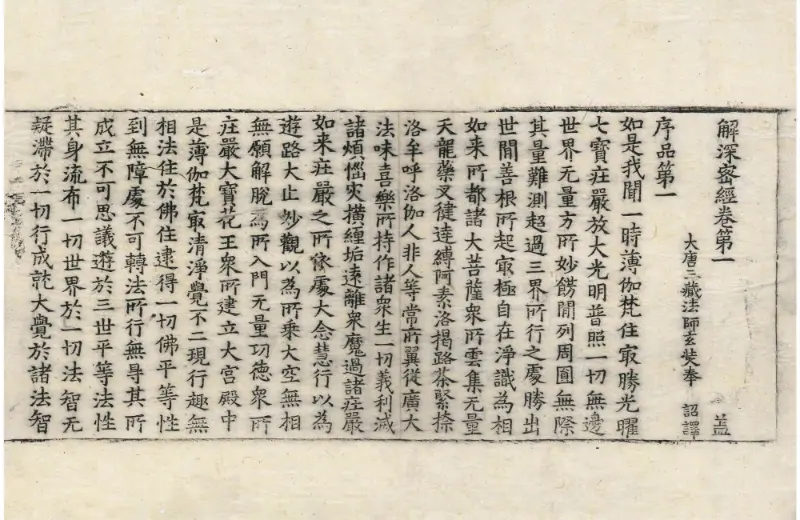 解深密經卷第一
盖
大唐三藏法師玄奘奉 詔譯
序品第一
如是我聞一時薄伽梵住㝡勝光曜
七寶莊嚴放大光明普照一切無邊
世界无量方所妙飾間列周圎無際
其量難測超過三界所行之處勝出
世間善根所起㝡極自在淨識為相
如來所都諸大菩薩衆所雲集无量
天龍藥叉健達縛阿素洛揭路荼緊捺
洛牟呼洛伽人非人等常所翼從廣大
法味喜樂所持作諸衆生一切義利滅
諸煩惱灾橫纏垢遠離衆魔過諸莊嚴
如来莊嚴之所依處大念慧行以為
遊路大止妙觀以為所乘大空無相
無願解脫為所入門无量功德衆所
莊嚴大寶花王衆所建立大宮殿中
是薄伽梵㝡清淨覺不二現行趣無
相法住於佛住逮得一切佛平等性
到無障處不可轉法所行無导其所
成立不可思議遊於三世平等法性
其身流布一切世界於一切法智无
疑滯於一切行成就大覺於諸法智